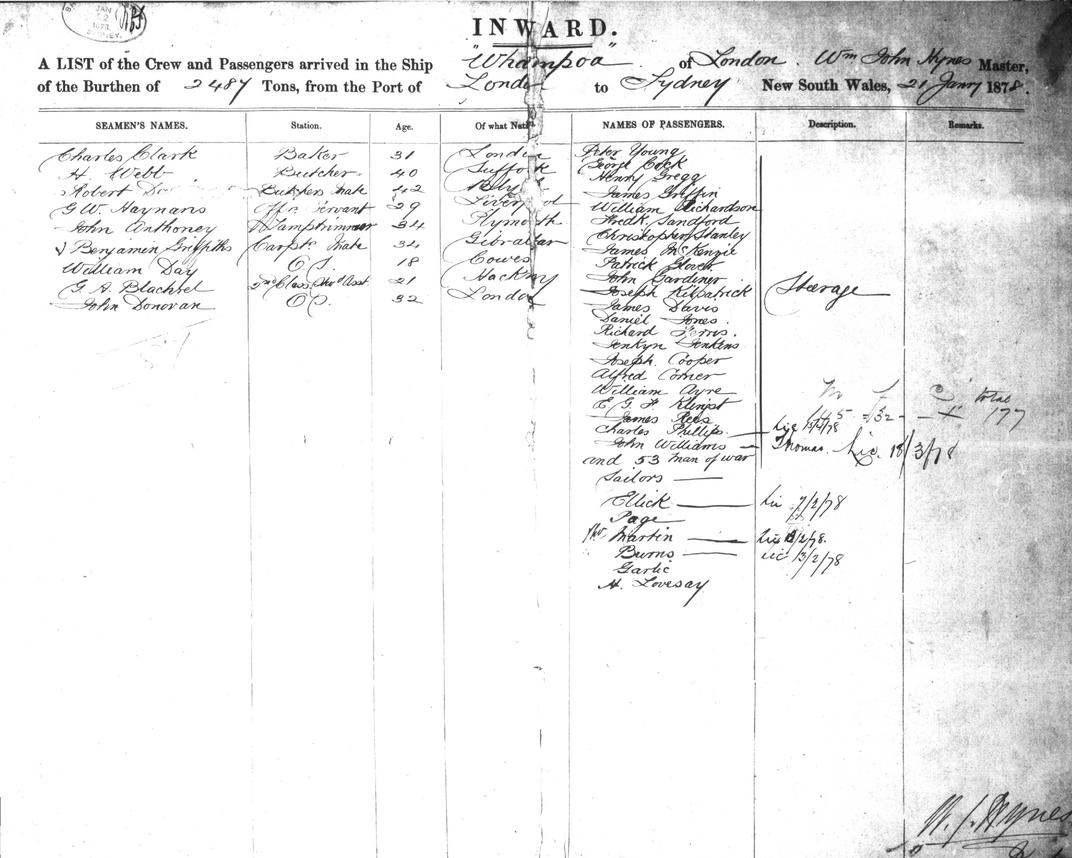 JAN
22
1878
SYDNEY.
INWARD.
A LIST of the Crew and Passengers arrived in the Ship "Whampoa" of London. Wm John Hynes Master,
of the Burthen of 2487 Tons, from the Port of London to Sydney New South Wales, 21 Janry 1878.
SEAMEN'S NAMES. Station. Age. Of what Nati NAMES OF PASSENGERS. Description. Remarks.
Charles Clark Baker 31 London Peter Young
H. Webb Butcher 40 Suffolk George Cock
Robert Butchers Mate 42 Henry Gregg
G.W. Haynans Servant 29 Liverpool James Griffin
John Anthoney Lamptrimmer 34 Plymouth William Richardson
Benjamin Griffiths Carptr Mate 34 Gibraltar Fredk Sandford
William Day O.S. 18 Cowes Christopher Stanley
G. A. Blachrel Class Asst 21 Hackny James McKenzie
John Donovan O.S. 32 London Patrick Glover
John Gardiner
Joseph Kilpatrick Steerage
James Davis
Daniel Jones
Richard Ferris
Jenkyn Jenkins
Joseph Cooper
Alfred Comer
William Ayre
E. G. F. Klingst
James Rees
M F C total
145 32 177
Charles Phillips
John Williams Thomas. Lic. 18/3/78
and 53 man of war
Sailors
Ellick Lic 7/2/78
Page
Martin Lic 13/2/78.
Burns Lic 13/2/78
Garlic
H. Lovesay
W. J. Hynes